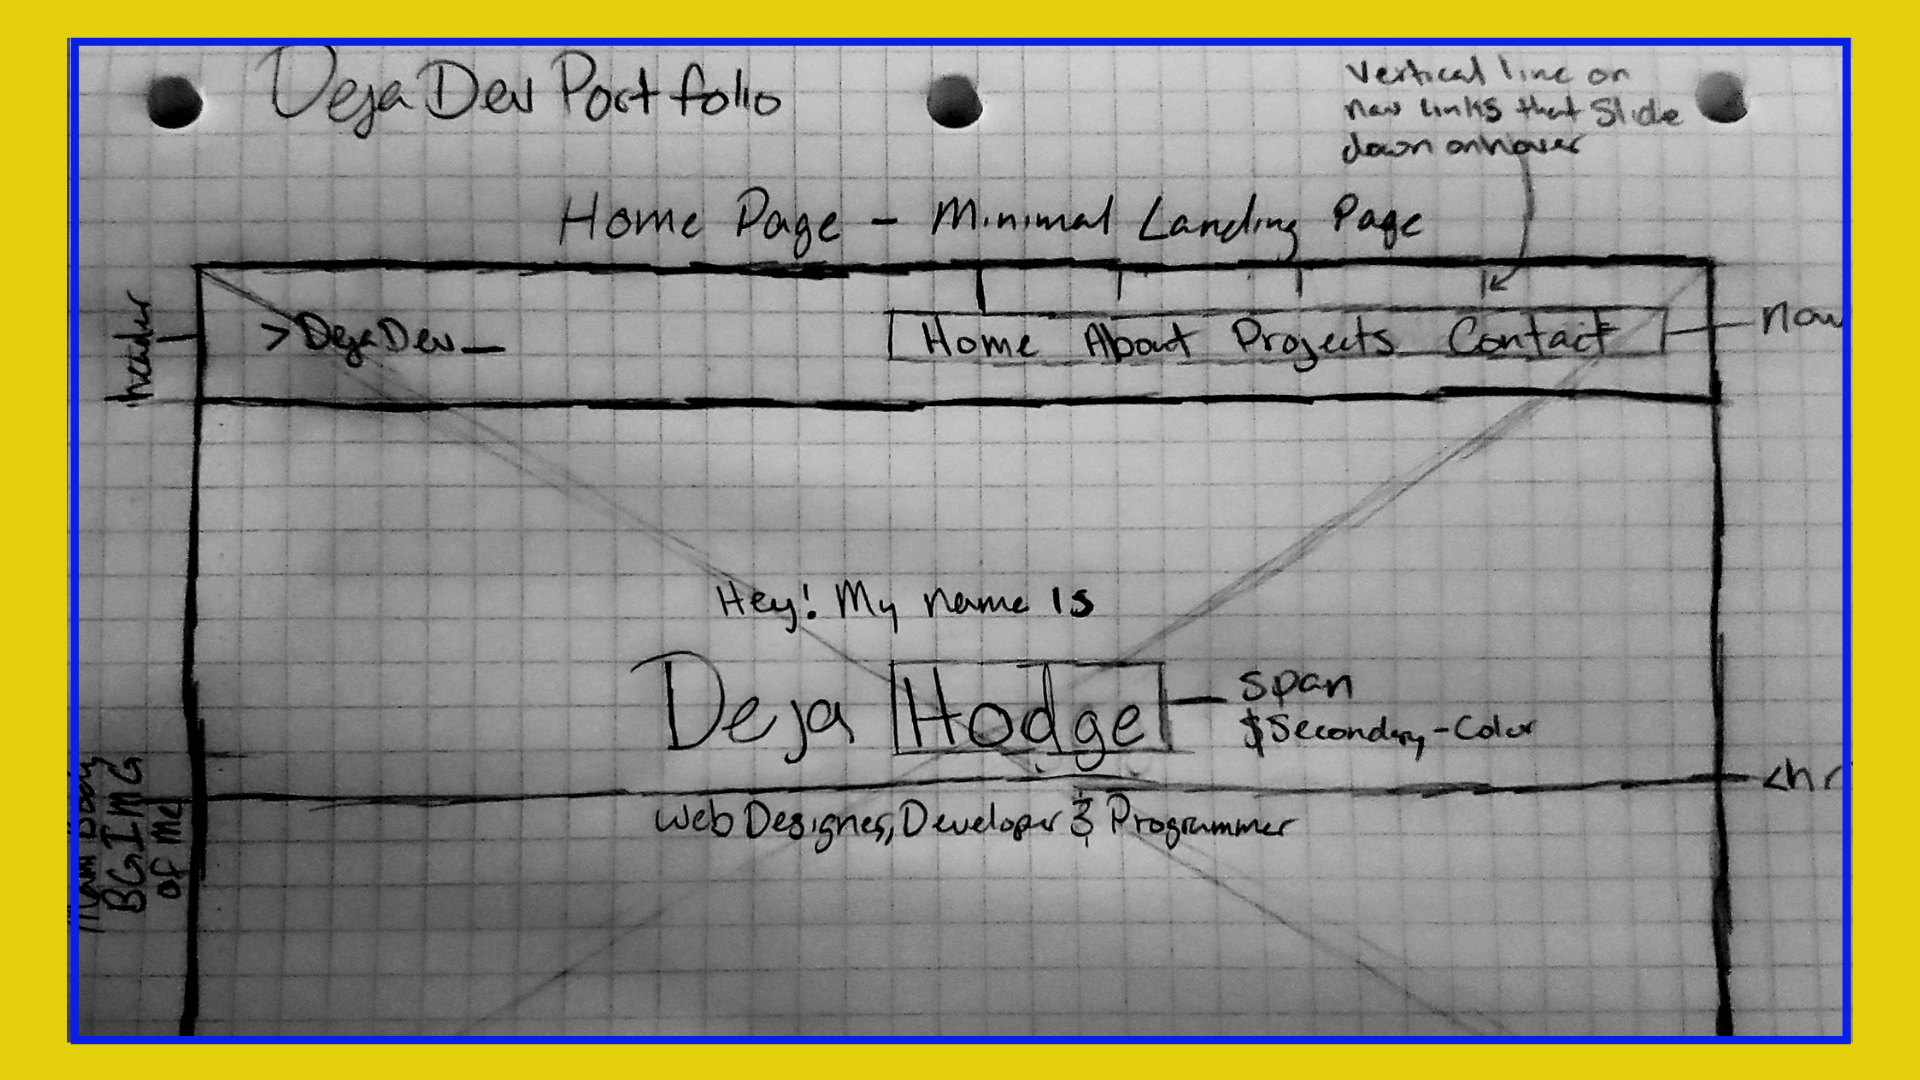 DejaDev Portfolio
Vertical line on
nav links that Slide
down on hover
Home Page - Minimal Landing Page
header
>DejaDev_
Home About Projects Contact
nav
Hey! My name is
Deja Hodge
span
$Secondary-Color
<hr
Web Designer, Developer & Programmer
Main Body
BG IMG
of me